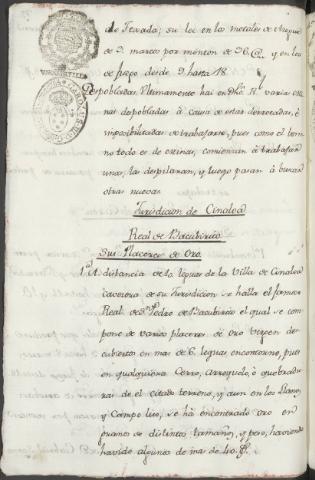 de Texada; su lei en los metales de Azogue
de 9. marcos por monton de 26 @. y en los
de fuego desde 9. hasta 18.
Despobladas. Ultimamente hai en dho. Rl. varias Mi-
nas despobladas à causa de estar derrocadas, è
imposibilitadas de trabajarse, pues como el terre-
no todo es de minas, comienzan à trabajar
unas, las despilaran, y luego pasan à buscar
otras nuevas.
Jurisdicion de Cinaloa
Real de Bacubirito
Sus Placeres de Oro.
1.ª A distancia de 20. leguas de la Villa de Cinaloa
cavecera de su Jurisdicion se halla el famoso
Real de Sn. Pedro de Bacubirito el qual se com-
pone de varios placeres de Oro Virgen des-
cubiertos en mas de 6. leguas encontorno, pues
en qualquiera Cerro, Arroyuelo, ò quebradu-
ras de el citado terreno, y aun en los Llanos,
y Campo liso, se ha encontrado oro en
granos de distintos tamaños, y peso, haviendo
havido algunos de mas de 40.